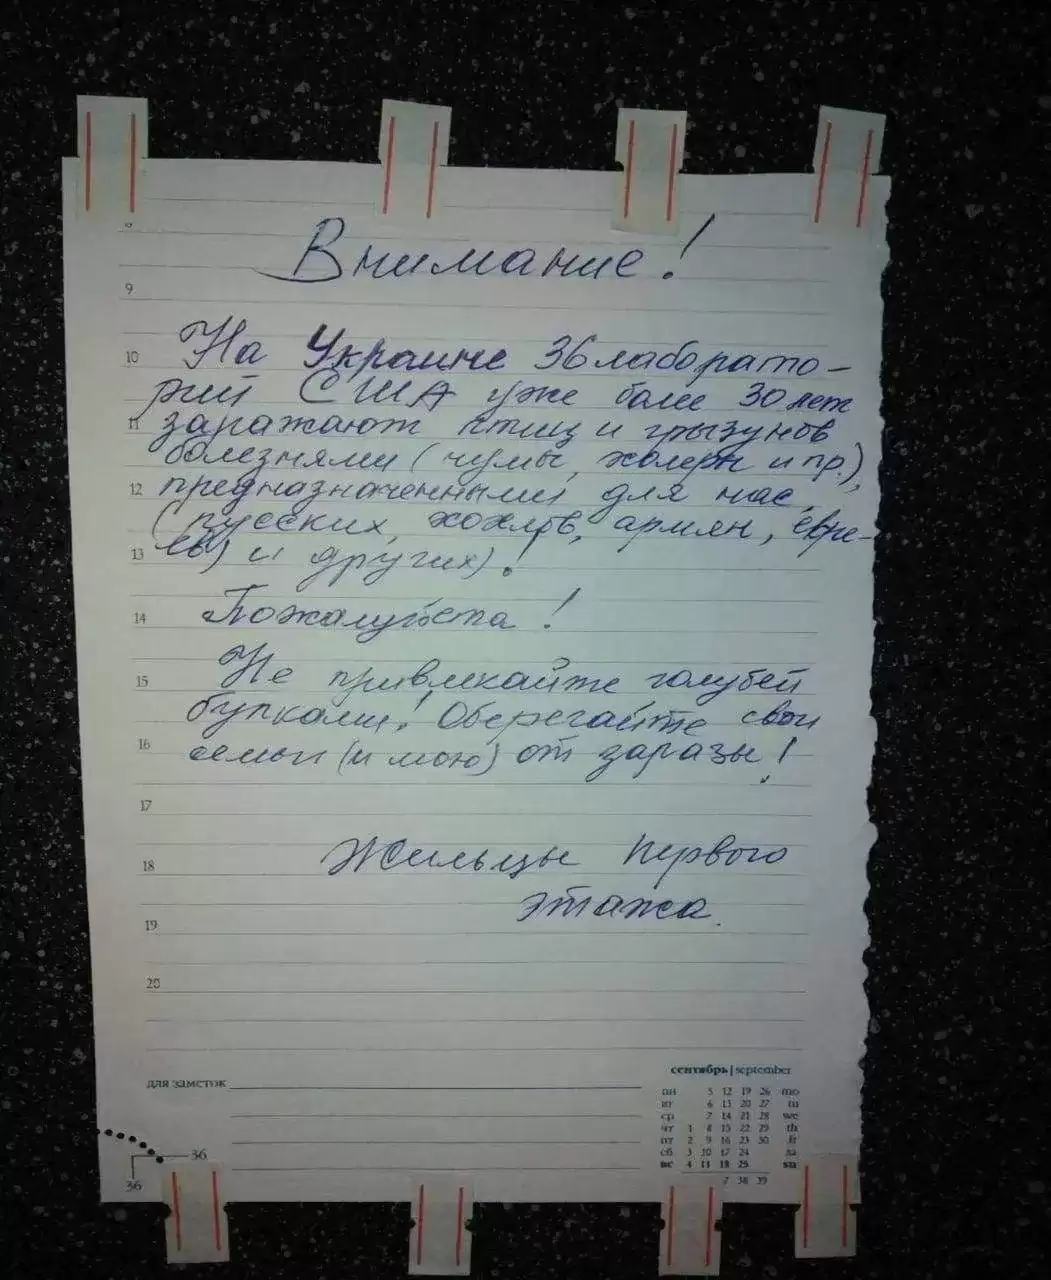 Внимание!
9
10
На Украине 36 лаборато-
рий США уже более 30 лет
11
заражают птиц и грызунов
болезнями (чумы, холеры и пр.),
12
предназначенными для нас
(русских, хохлов, армян, евре-
13
ев) и других)!
14
Пожалуйста!
15
Не привлекайте голубей
булками! Оберегайте свои
16
семьи (и мою) от заразы!
17
18
Жильцы первого
этажа.
19
20
для заметок
сентябрь | september
пн 5 12 19 26 mo
вт 6 13 20 27 tu
ср 7 14 21 28 we
чт 1 8 15 22 29 th
пт 2 9 16 23 30 fr
сб 3 10 17 24 sa
вс 4 11 18 25 su
7 38 39
36
36